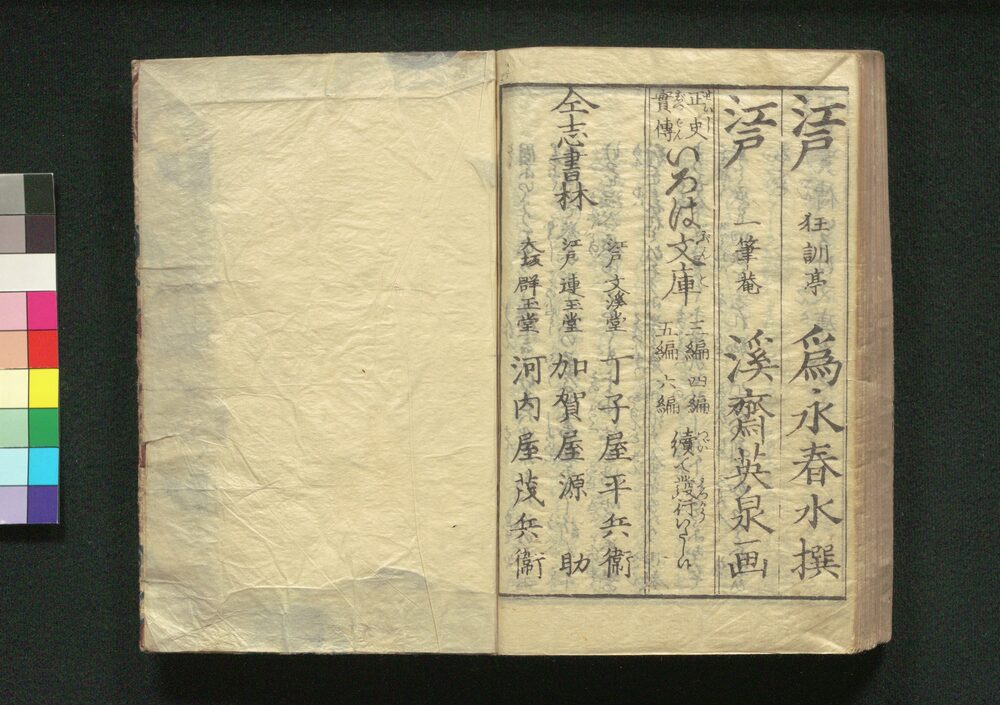 江戸 狂訓亭 爲永春水撰
江戸 一筆菴 溪齋英泉画
正史
實傳
いろは文庫
三編 四編
五編 六編
續て發行いたし候
仝志書林
江戸 文溪堂 丁子屋平兵衞
江戸 連玉堂 加賀屋源助
大坂 群玉堂 河内屋茂兵衞